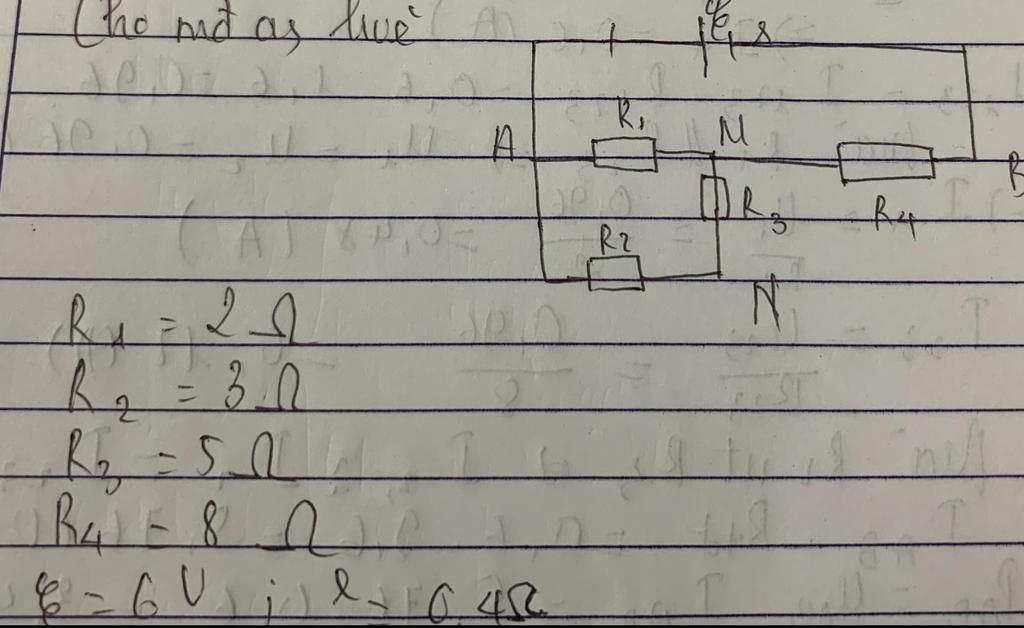 Cho mđ as hvẽ
ξ, r
R₁
A
M
B
R₃
R₄
R₂
N
R₁ = 2 Ω
R₂ = 3 Ω
R₃ = 5 Ω
R₄ = 8 Ω
ξ = 6 V ; r = 0.4Ω